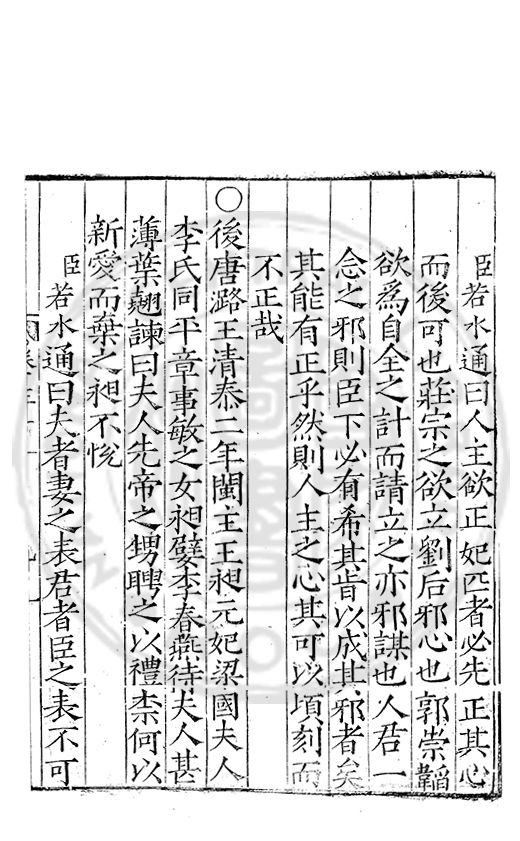 臣若水通曰人主欲正妃匹者必先正其心
而後可也莊宗之欲立劉后邪心也郭崇韜
欲爲自全之計而請立之亦邪謀也人君一
念之邪則臣下必有希其旨以成其邪者矣
其能有正乎然則人主之心其可以頃刻而
不正哉
○後唐潞王清泰二年閩主王昶元妃梁國夫人
李氏同平章事敏之女昶嬖李春燕待夫人甚
薄葉翹諫曰夫人先帝之甥聘之以禮柰何以
新愛而棄之昶不悅
臣若水通曰夫者妻之表君者臣之表不可